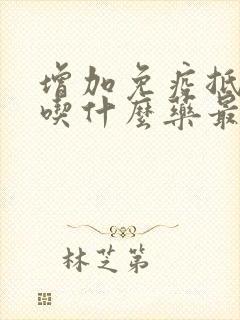 增加免疫抵
喫什麼藥最
林芝第